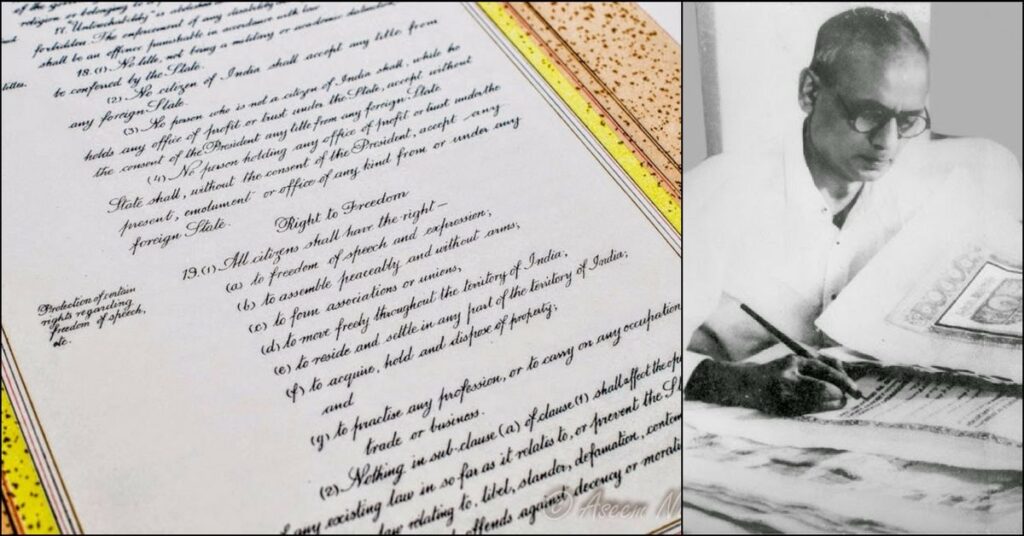 of the gover
religion or belonging to a
17. "Untouchability" is abolished
forbidden. The enforcement of any disability
shall be an offence punishable in accordance with law
18. (1) No title, not being a military or academic distinction,
be conferred by the State.
(2) No citizen of India shall accept any title from
any foreign State.
(3) No person who is not a citizen of India shall, while he
holds any office of profit or trust under the State, accept without
the consent of the President any title from any foreign State.
(4) No person holding any office of profit or trust under the
State shall, without the consent of the President, accept any
present, emolument or office of any kind from or under any
foreign State.
Right to Freedom
Protection of certain
rights regarding
freedom of speech,
etc.
19. (1) All citizens shall have the right—
(a) to freedom of speech and expression;
(b) to assemble peaceably and without arms;
(c) to form associations or unions;
(d) to move freely throughout the territory of India;
(e) to reside and settle in any part of the territory of India;
(f) to acquire, hold and dispose of property;
and
(g) to practise any profession, or to carry on any occupation
trade or business.
(2) Nothing in sub-clause (a) of clause (1) shall affect the ope
of any existing law in so far as it relates to, or prevent the S
law relating to, libel, slander, defamation, contem
offends against decency or morali
© Aseem N